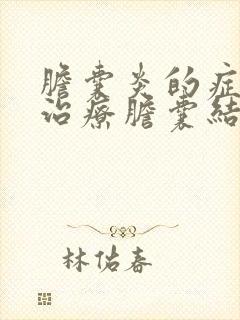 膽囊炎的症
治療膽囊結
林佑春